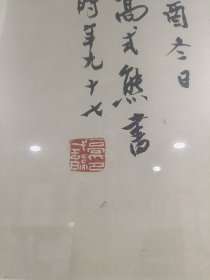 酉冬日
高式熊書
時年九十七